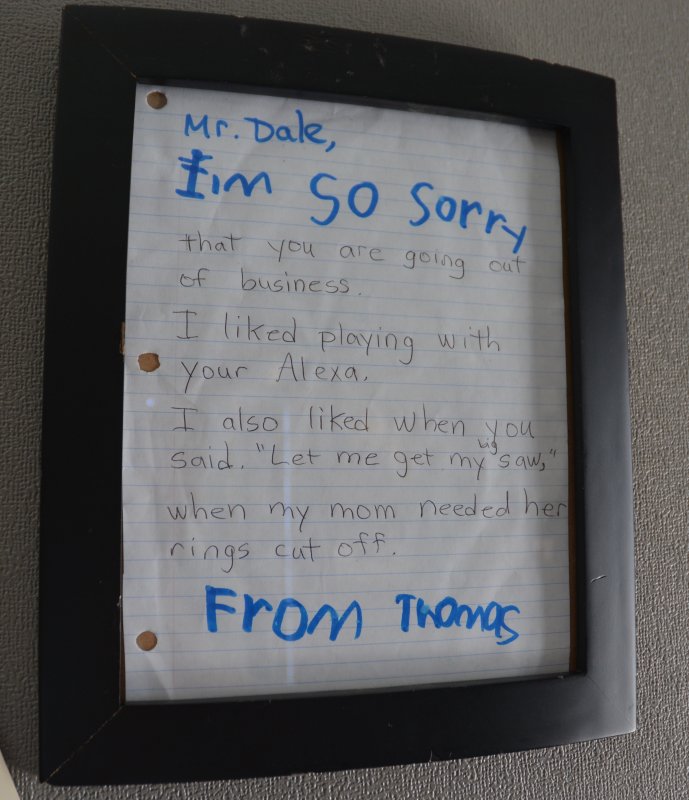 Mr. Dale,
I'm so sorry
that you are going out
of business.
I liked playing with
your Alexa.
I also liked when you
said. "Let me get my big saw,"
when my mom needed her
rings cut off.
From Thomas